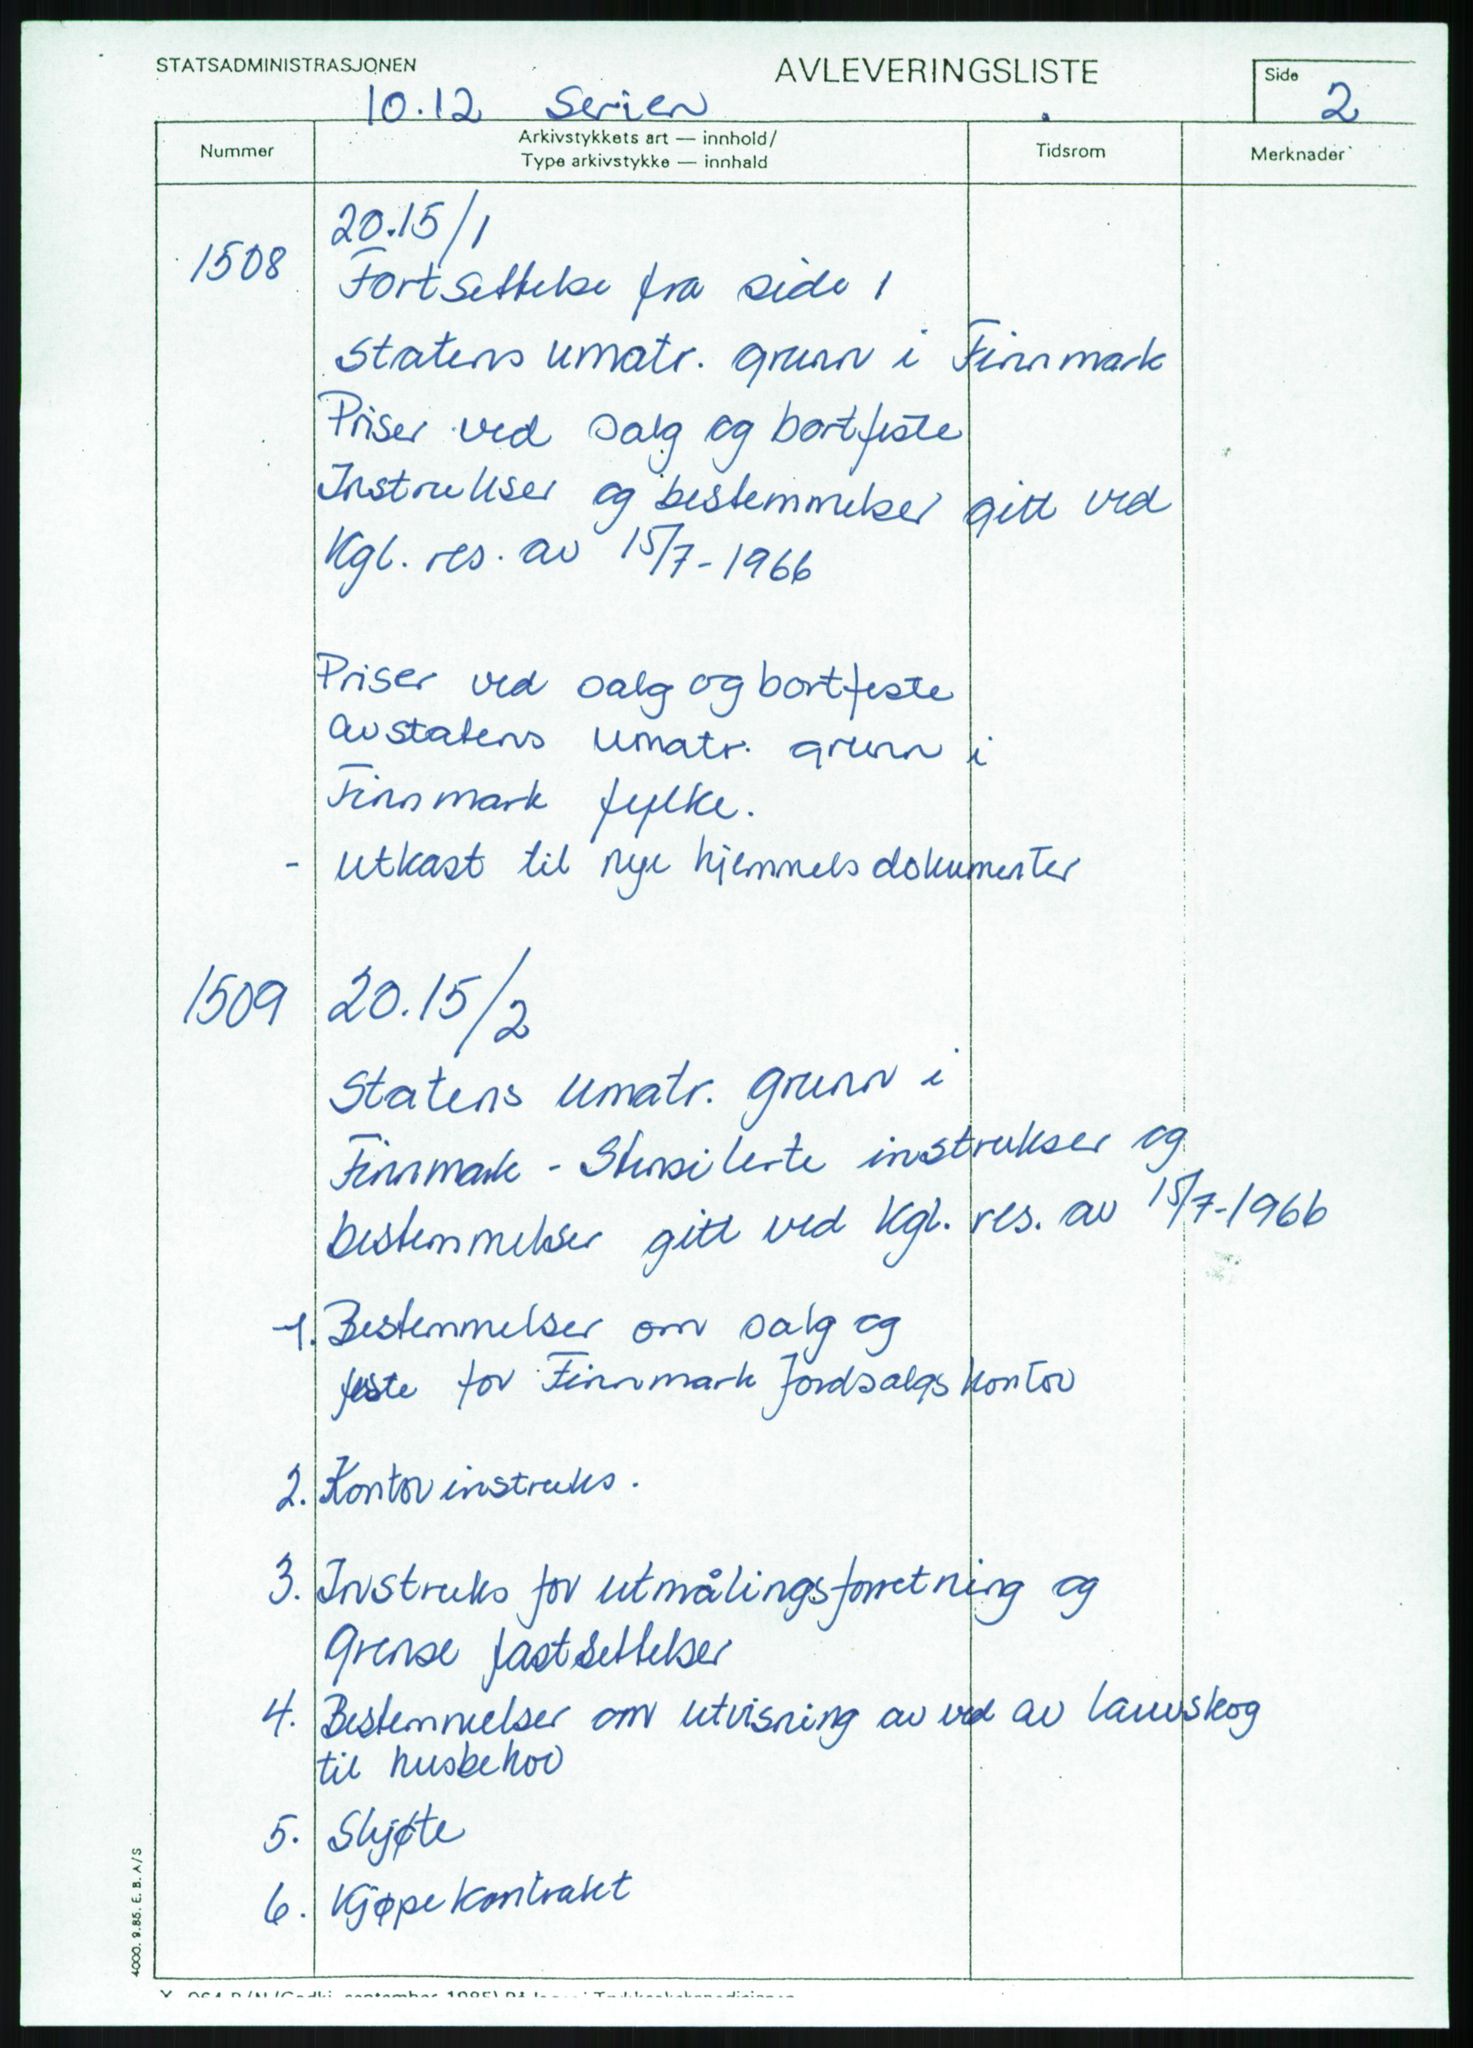 STATSADMINISTRASJONEN
AVLEVERINGSLISTE
Side 2
10.12 Serien
Nummer
Arkivstykkets art — innhold/
Type arkivstykke — innhald
Tidsrom
Merknader
20.15/1
1508
Fortsettelse fra side 1
Statens umatr. grunn i Finnmark
Priser ved salg og bortfeste
Instrukser og bestemmelser gitt ved
Kgl. res. av 15/7-1966
Priser ved salg og bortfeste
av statens umatr. grunn i
Finnmark fylke.
- utkast til nye hjemmelsdokumenter
1509 20.15/2
Statens umatr. grunn i
Finnmark - Stensilerte instrukser og
bestemmelser gitt ved Kgl. res. av 15/7-1966
1. Bestemmelser om salg og
feste for Finnmark Jordsalgskontor
2. Kontorinstruks.
3. Instruks for utmålingsforretning og
Grense fastsettelser
4. Bestemmelser om utvisning av ved av lauvskog
til husbehov
5. Skjøte
6. Kjøpekontrakt
4000. 9.85. E. B. A/S